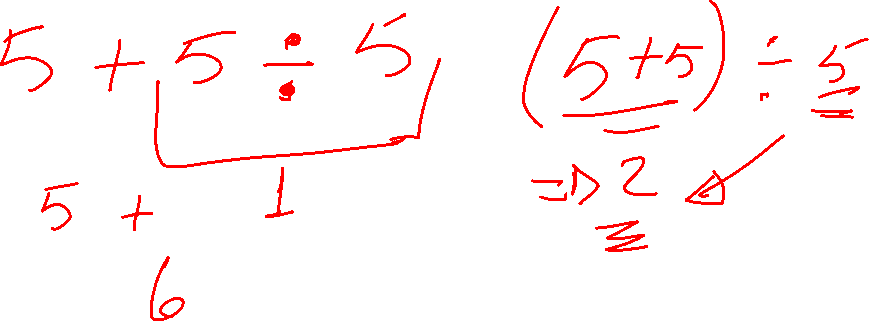 5 + 5 ÷ 5
5 + 1
6
(5+5) ÷ 5
⇒ 2